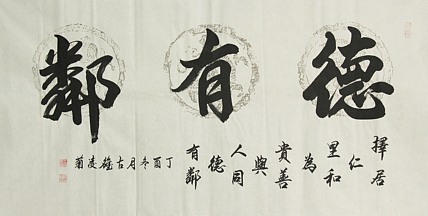 德有鄰
擇居
仁
里和
為
貴善
與
人同
德
有鄰
丁酉冬月古凌菊